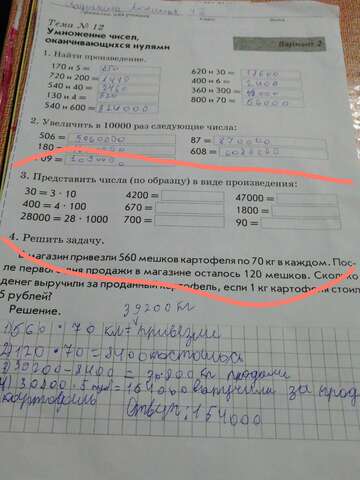 Тема № 12
Умножение чисел,
оканчивающихся нулями
Вариант 2
1. Найти произведение.
170 и 5 = 850
720 и 200 =
540 и 40 =
130 и 4 = 520
540 и 600 = 324000
620 и 30 =
400 и 6 = 2400
360 и 300 =
800 и 70 = 56000
2. Увеличить в 10000 раз следующие числа:
506 = 5060000
180 =
709 =
87 = 870000
608 = 6080000
3. Представить числа (по образцу) в виде произведения:
30 = 3 · 10
400 = 4 · 100
28000 = 28 · 1000
4200 =
670 =
700 =
47000 =
1800 =
90 =
4. Решить задачу.
В магазин привезли 560 мешков картофеля по 70 кг в каждом. Пос-
ле первого дня продажи в магазине осталось 120 мешков. Сколько
денег выручили за проданный картофель, если 1 кг картофеля стоил
5 рублей?
Решение.
39200 кг
1) 560 · 70 = привезли
2) 120 · 70 = 8400 осталось
3) 39200 - 8400 = 30800 кг продали
4) 30800 · 5 = 154000 выручили за прод
картофель
Ответ: 154000